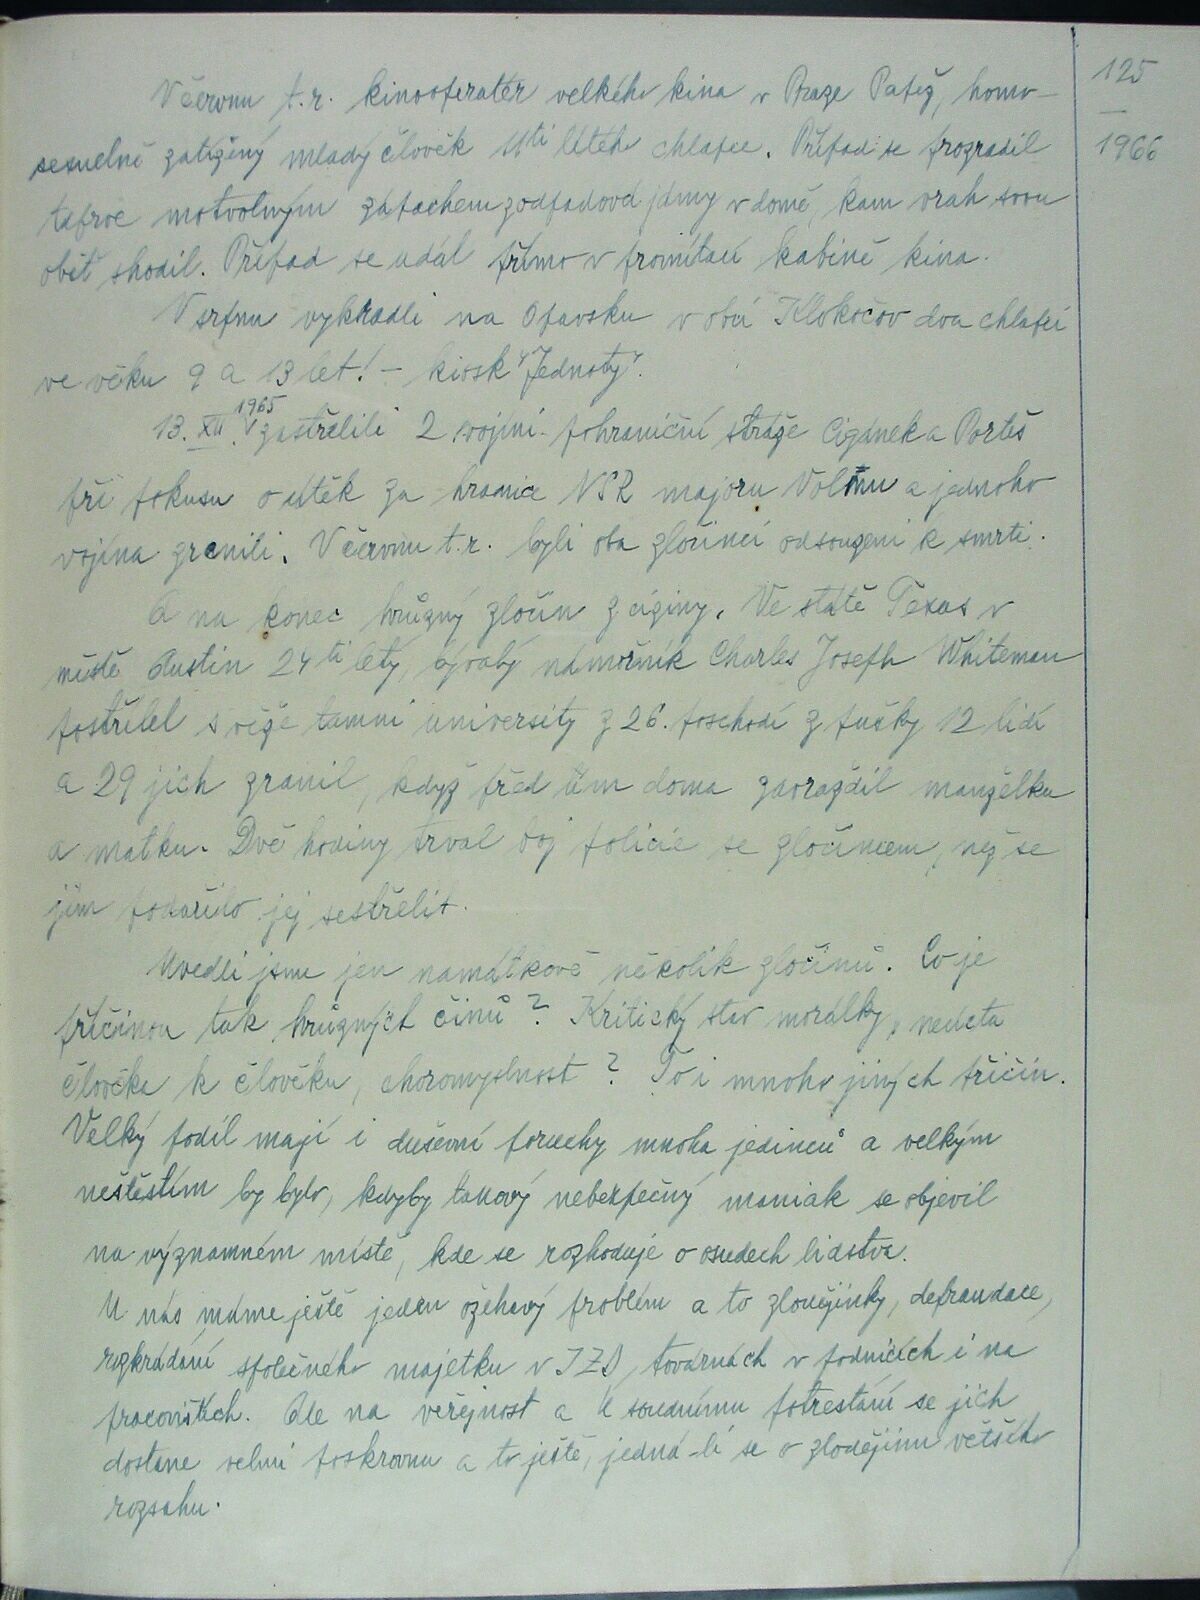 125
1966
V červnu t.r. kinooperatér velkého kina v Praze Patež, homo-
sexuelně zatížený mladý člověk 11ti letého chlapce. Případ se prozradil
teprve mrtvolným zápachem z odpadové jámy v domě, kam vrah svou
oběť shodil. Případ se udál přímo v promítací kabině kina.
V srpnu vykradli na Opavsku v obci Klokočov dva chlapci
ve věku 9 a 13 let! - kiosk "Jednoty".
13. XII. 1965 zastřelili 2 vojíni pohraniční stráže Cigánek a Porteš
při pokusu o útěk za hranice NSR majora a jednoho
vojína zranili. V červnu t.r. byli oba zločinci odsouzeni k smrti.
A na konec hrůzný zločin z ciziny. Ve státě Texas v
městě Austin 24ti letý, bývalý námořník Charles Josefh Whiteman
postřílel s věže tamní university z 26. poschodí z pušky 12 lidí
a 29 jich zranil, když před tím doma zavraždil manželku
a matku. Dvě hodiny trval boj policie se zločincem, než se
jim podařilo jej sestřelit.
Uvedli jsme jen namátkově několik zločinů. Co je
příčinou tak hrůzných činů? Kritický stav morálky, neúcta
člověka k člověku, choromyslnost? To i mnoho jiných příčin.
Velký podíl mají i duševní poruchy mnoha jedinců a velkým
neštěstím by bylo, kdyby takový nebezpečný maniak se objevil
na významném místě, kde se rozhoduje o osudech lidstva.
U nás máme ještě jeden ožehavý problém a to zlodějinky, defraudace,
rozkrádání společného majetku v JZD, továrnách v podnicích i na
pracovištích. Ale na veřejnost a k soudnímu potrestání se jich
dostane velmi poskrovnu a to ještě, jedná-li se o zlodějinu většího
rozsahu.